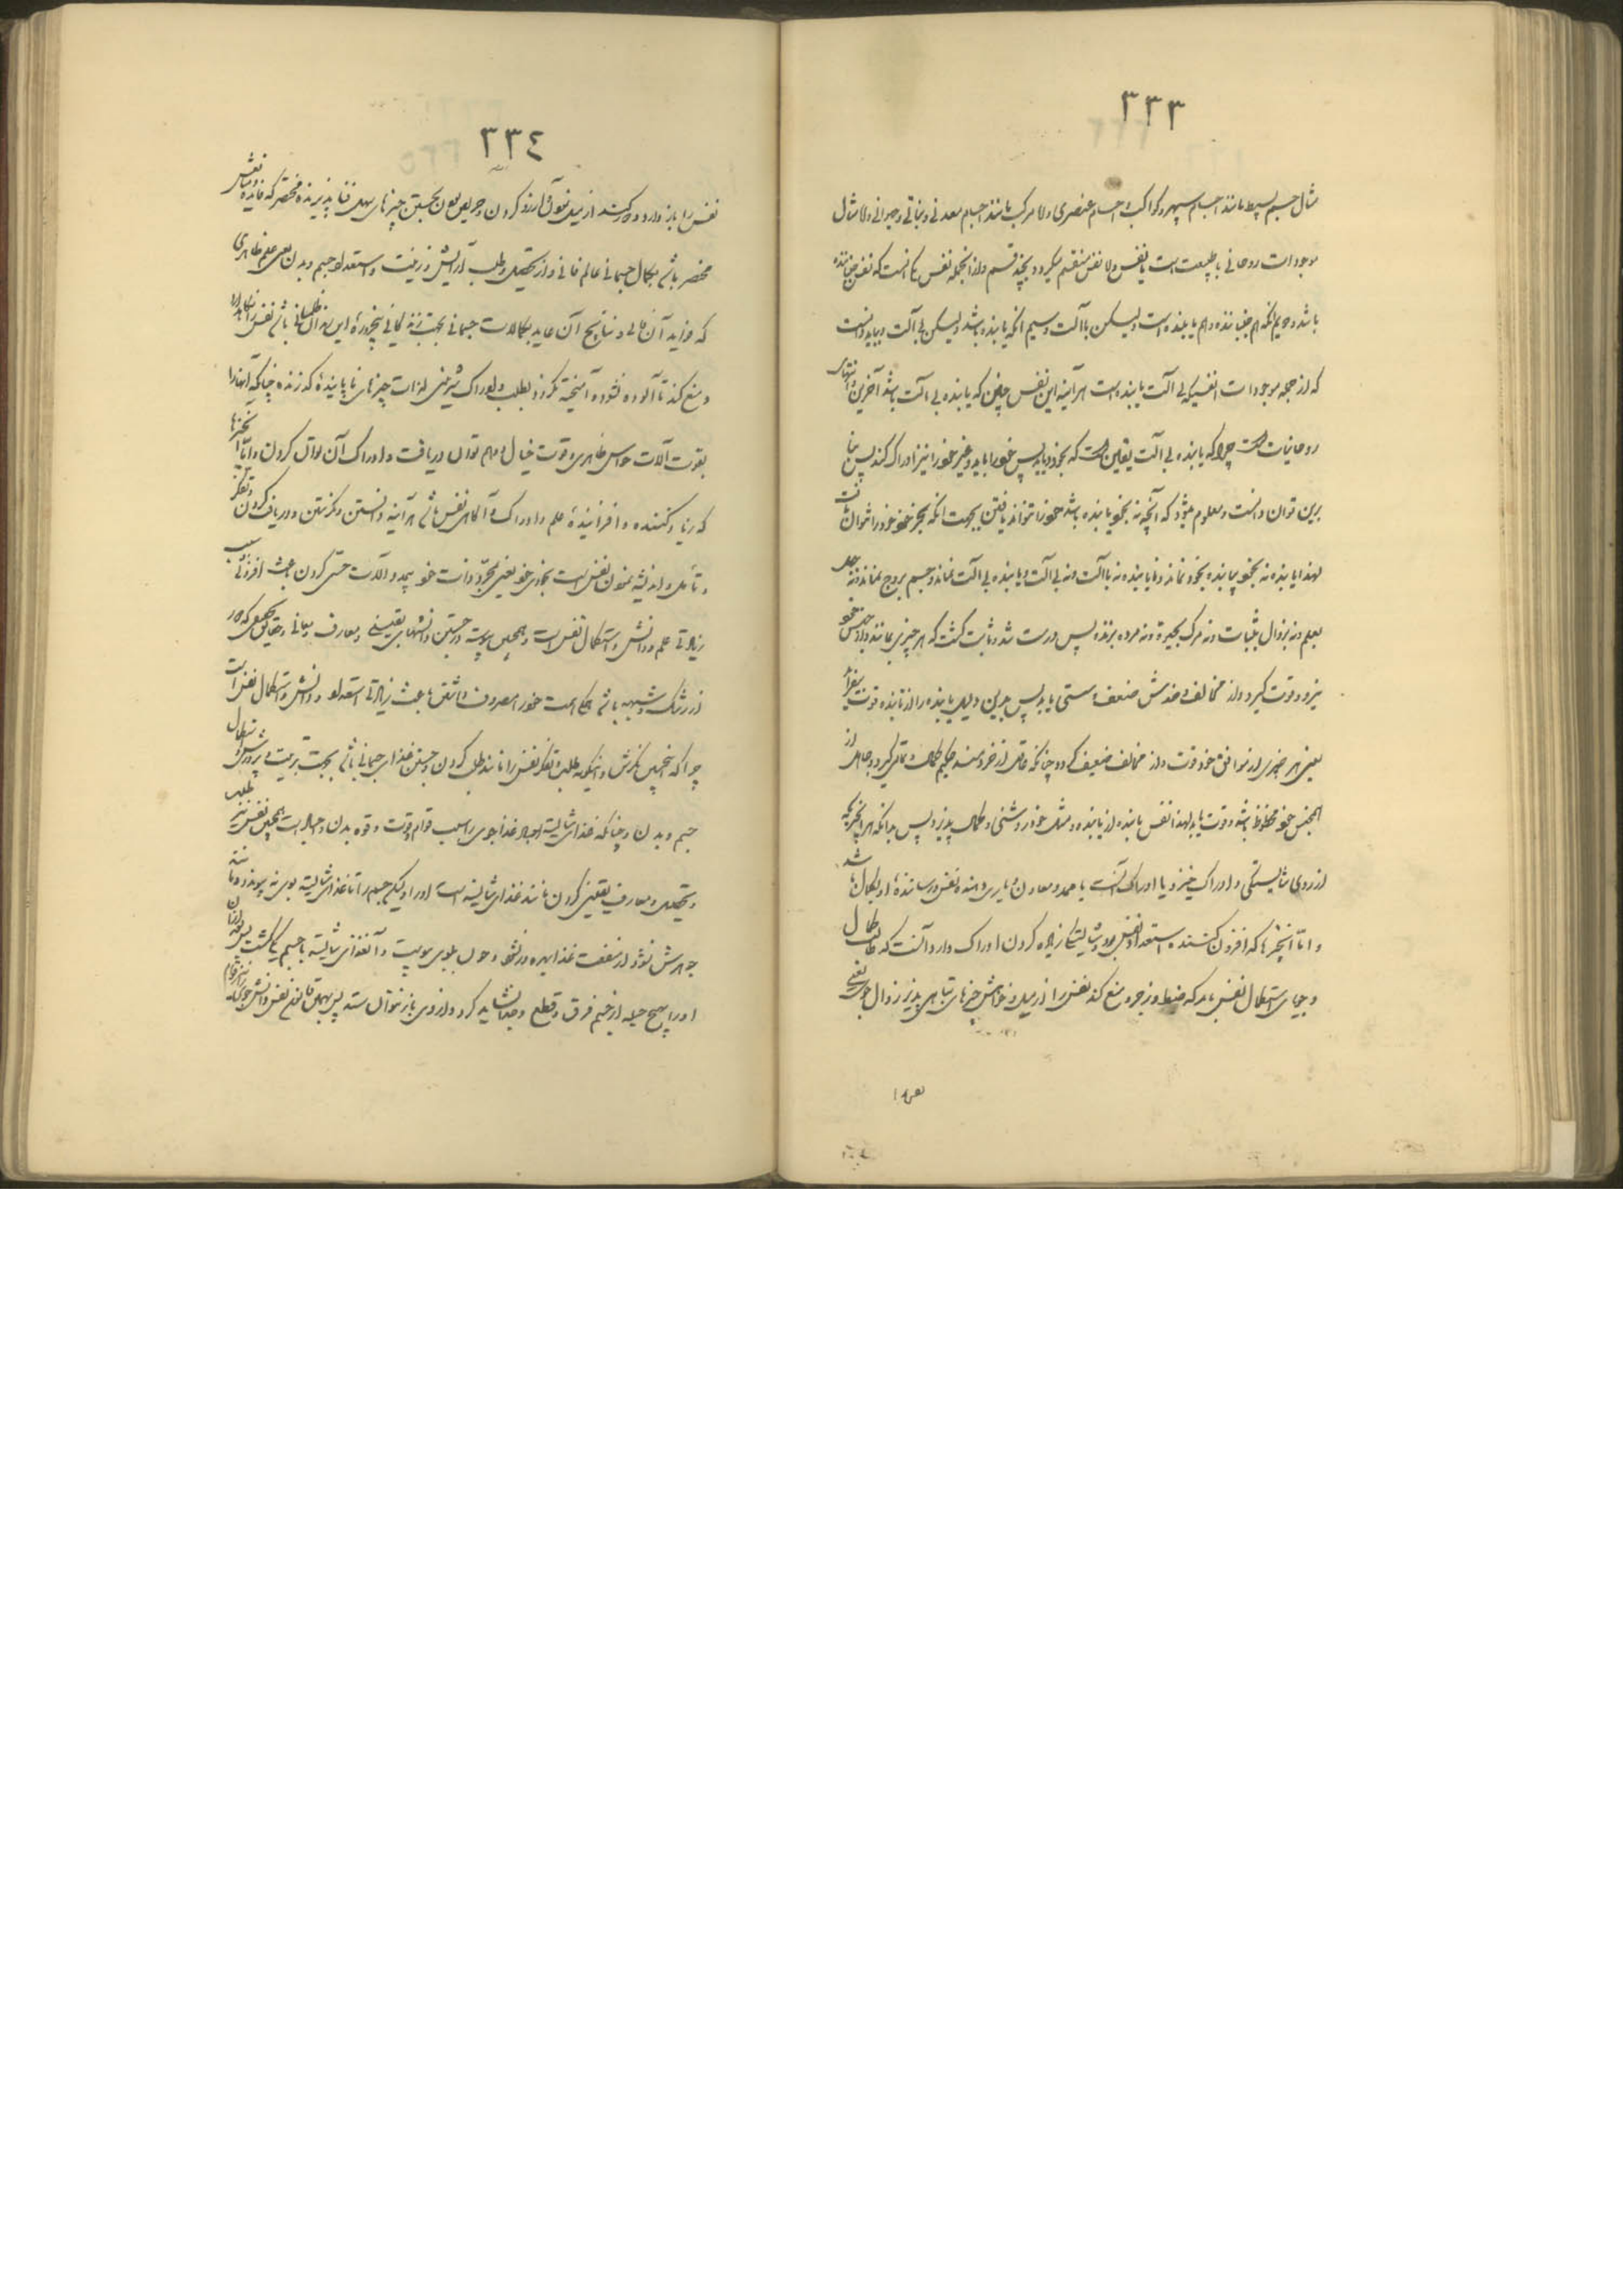 ٣٣٣
مثال جسم بسیط مانند اجسام سپهر و کواکب و اجسام عنصری و اما مرکب مانند اجسام معدنی و نباتی و حیوانی و اما مثال
موجودات روحانی یا طبیعت است یا نفس و اما نفس منقسم میگردد بچند قسم و از آنجمله نفس یکی آنست که نفس جنباننده
باشد دویم آنکه هم جنباننده و هم یابنده است ولیکن باآلت و سیم آنکه یابنده باشد ولیکن بی آلت و بباید دانست
که از جمله موجودات نفسیکه بی آلت یابنده است هرآینه این نفس چنین که یابنده بی آلت باشد آخرین و انتهای
روحانیات است چرا که یابنده بی آلت یقین است که بخود یابد پس خود را یابد و غیر خود را نیز ادراک کند پس بنا
برین توان دانست و معلوم میشود که آنچه نه بخود یابنده باشد خود را نتواند یافتن بجهت آنکه بجز خود خود را نتوان یافت
لهذا یابنده نه بخود بیابنده بخود نماند و نایابنده نه باآلت و نه بی آلت و یابنده بی آلت نماند و جسم بروح نماند و نه جهل
بعلم و نه زوال بثبات و نه مرگ بحیوة و نه مرده بزنده پس درست شد و ثابت گشت که هر چیزی بمانند و از جنس خود
نیرو و قوت گیرد و از مخالف و ضدش ضعف و سستی یابد پس بدین دلیل یابنده را از یابنده قوت بیفزاید
یعنی هر چیزی از موافق خود قوت و از مخالف ضعیف گردد چنانکه عاقل از خردمند و حکیم کمال و تمامی گیرد و جاهل از
همجنس خود محظوظ باشد و قوت یابد لهذا نفس یابنده از یابنده و مثل خود روشنی و کمال پذیرد پس بدانکه هر آنچیزیکه
از روی شایستگی و ادراک خیزد یا ادراک آنست یا ممد و معاون و یاری دهنده نفس و رساننده او بکمال باشد
و اما آنچیزها که افزون کننده استعداد نفس بود و شایستگی زیاده کردن ادراک دارد آنست که طالب کمال
و جویای استکمال نفس باشد که ضبط و زجر و منع کند نفس را از میل و خواهش چیزهای تباهی پذیر زوال جوی یعنی
نفس را
٣٣٤
نفس را باز دارد و دور کند از میل و شوق و آرزو کردن و حریص بودن بجستن چیزهای سهل فنا پذیرنده مختصر که فایده و منافعش
مختصر باشد بکمال جسمانی عالم فانی و از تحصیل و طلب آرایش و زینت و استعداد جسم و بدن یعنی علم ظاهری
که فواید آن مالی و نتایج آن عاید بکمالات جسمانی بجهت زندگانی پنجروزه این سرای ظلمانی باشد نفس را نگاهدارد
و منع کند تا آلوده نشود و آمیخته نگردد بطلب و ادراک شیرینی لذات چیزهای ناپاینده گذرنده چنانکه آنها را
بقوت آلات حواس ظاهری و قوت خیال و وهم توان دریافت و ادراک آن توان کردن و اما آنچیزها
که زیاد کننده و افزاینده علم و ادراک و آگاهی نفس باشد هرآینه دانستن و نگریستن و دریافت کردن و تفکر
و تأمل و اندیشه نمودن نفس است بخودی خود یعنی بمجرد ذات خود بیمدد آلات حسی کردن باعث افزونی بسبب
زیادتی علم و دانش و استکمال نفس است و همچنین پیوسته در جستن دانشهای یقینی و معارف ربانی و حقایق حکمی که دور
از شک و شبهه باشد همگی همت خود را مصروف داشتن باعث زیادتی استعداد و دانش و استکمال نفس است
چرا که اینچنین نگرش و اینگونه طلب و تفکر نفس را مانند طلب کردن و جستن غذای جسمانی باشد بجهت تربیت و پرورش و استکمال
جسم و بدن و چنانکه غذای شایسته اجساد غذا جوی را سبب قوام و قوت و قوه بدن و جسد است همچنین نفس نیز بطلب
و تحصیل معارف یقینی کردن مانند غذای شایسته است او را و لیکن جسم را تا غذای شایسته بوی نه پیوندد و مانند
جوهرش نشود از منفعت غذا بهره ور نشود و چون بوی پیوست و آن غذای شایسته با جسم یکی گشت پس
او را هیچ حیله از جسم فرق و قطع و جدا نشاید کرد و از وی باز نتوان ستد پس بهمین قانون نفس دانش جوی